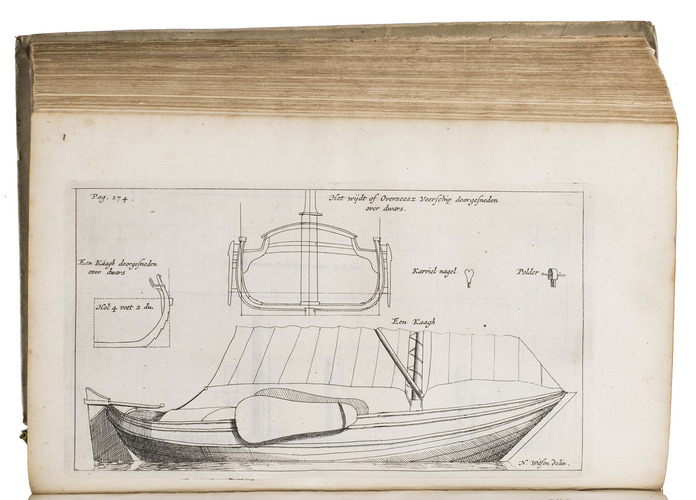 Pag. 174.
Het wijdt of Overzeez Veerschip doorgesneden
over dwars.
Een Kaagh doorgesneden
over dwars
Hol 4 voet 2 du.
Karviel nagel
Polder
Een Kaagh
N. Witsen delin.